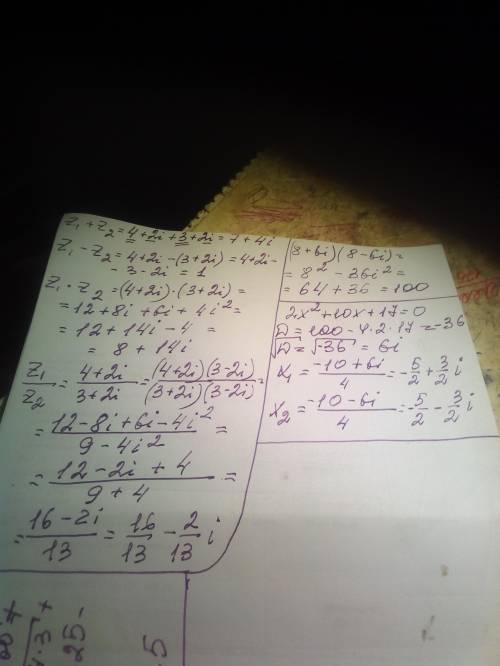 z₁ + z₂ = 4 + 2i + 3 + 2i = 7 + 4i
z₁ - z₂ = 4 + 2i - (3 + 2i) = 4 + 2i -
- 3 - 2i = 1
z₁ · z₂ = (4 + 2i) · (3 + 2i) =
= 12 + 8i + 6i + 4i² =
= 12 + 14i - 4 =
= 8 + 14i
z₁/z₂ = (4 + 2i)/(3 + 2i) = (4 + 2i)(3 - 2i)/(3 + 2i)(3 - 2i) =
= (12 - 8i + 6i - 4i²)/(9 - 4i²) =
= (12 - 2i + 4)/(9 + 4) =
= (16 - 2i)/13 = 16/13 - 2/13 i
(8 + 6i)(8 - 6i) =
= 8² - 36i² =
= 64 + 36 = 100
2x² + 10x + 17 = 0
D = 100 - 4 · 2 · 17 = -36
√D = √-36 = 6i
x₁ = (-10 + 6i)/4 = -5/2 + 3/2 i
x₂ = (-10 - 6i)/4 = -5/2 - 3/2 i
25 -